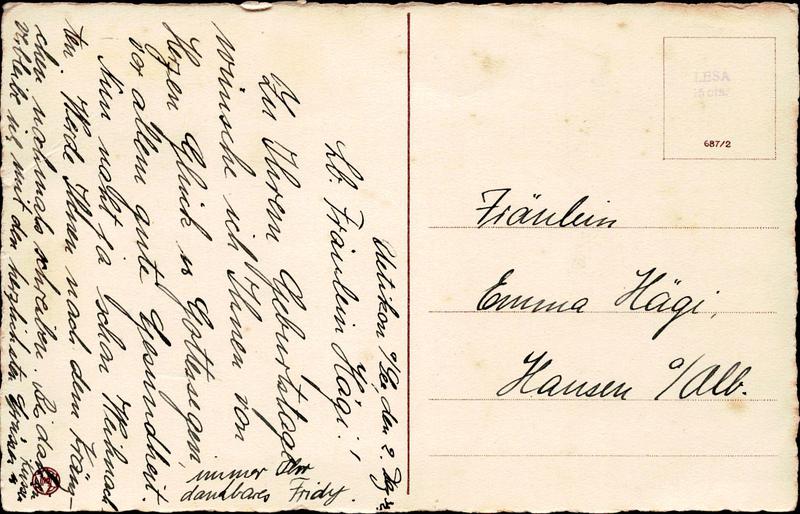 Uetikon a/See, den 2. Dez.
Lb. Fräulein Hägi!
Zu Ihrem Geburtstage
wünsche ich Ihnen von
Herzen Glück u. Gottessegen,
vor allem gute Gesundheit.
Nun naht ja schon Weihnach-
ten. Werde Ihnen nach dem
schen nochmals schreiben. Bis dahin
verbleibe ich mit den herzlichsten Grüssen u.
Küssen
immer Ihr
dankbares Fridy.
LESA
15 cts.
687/2
Fräulein
Emma Hägi,
Hausen a/Alb.